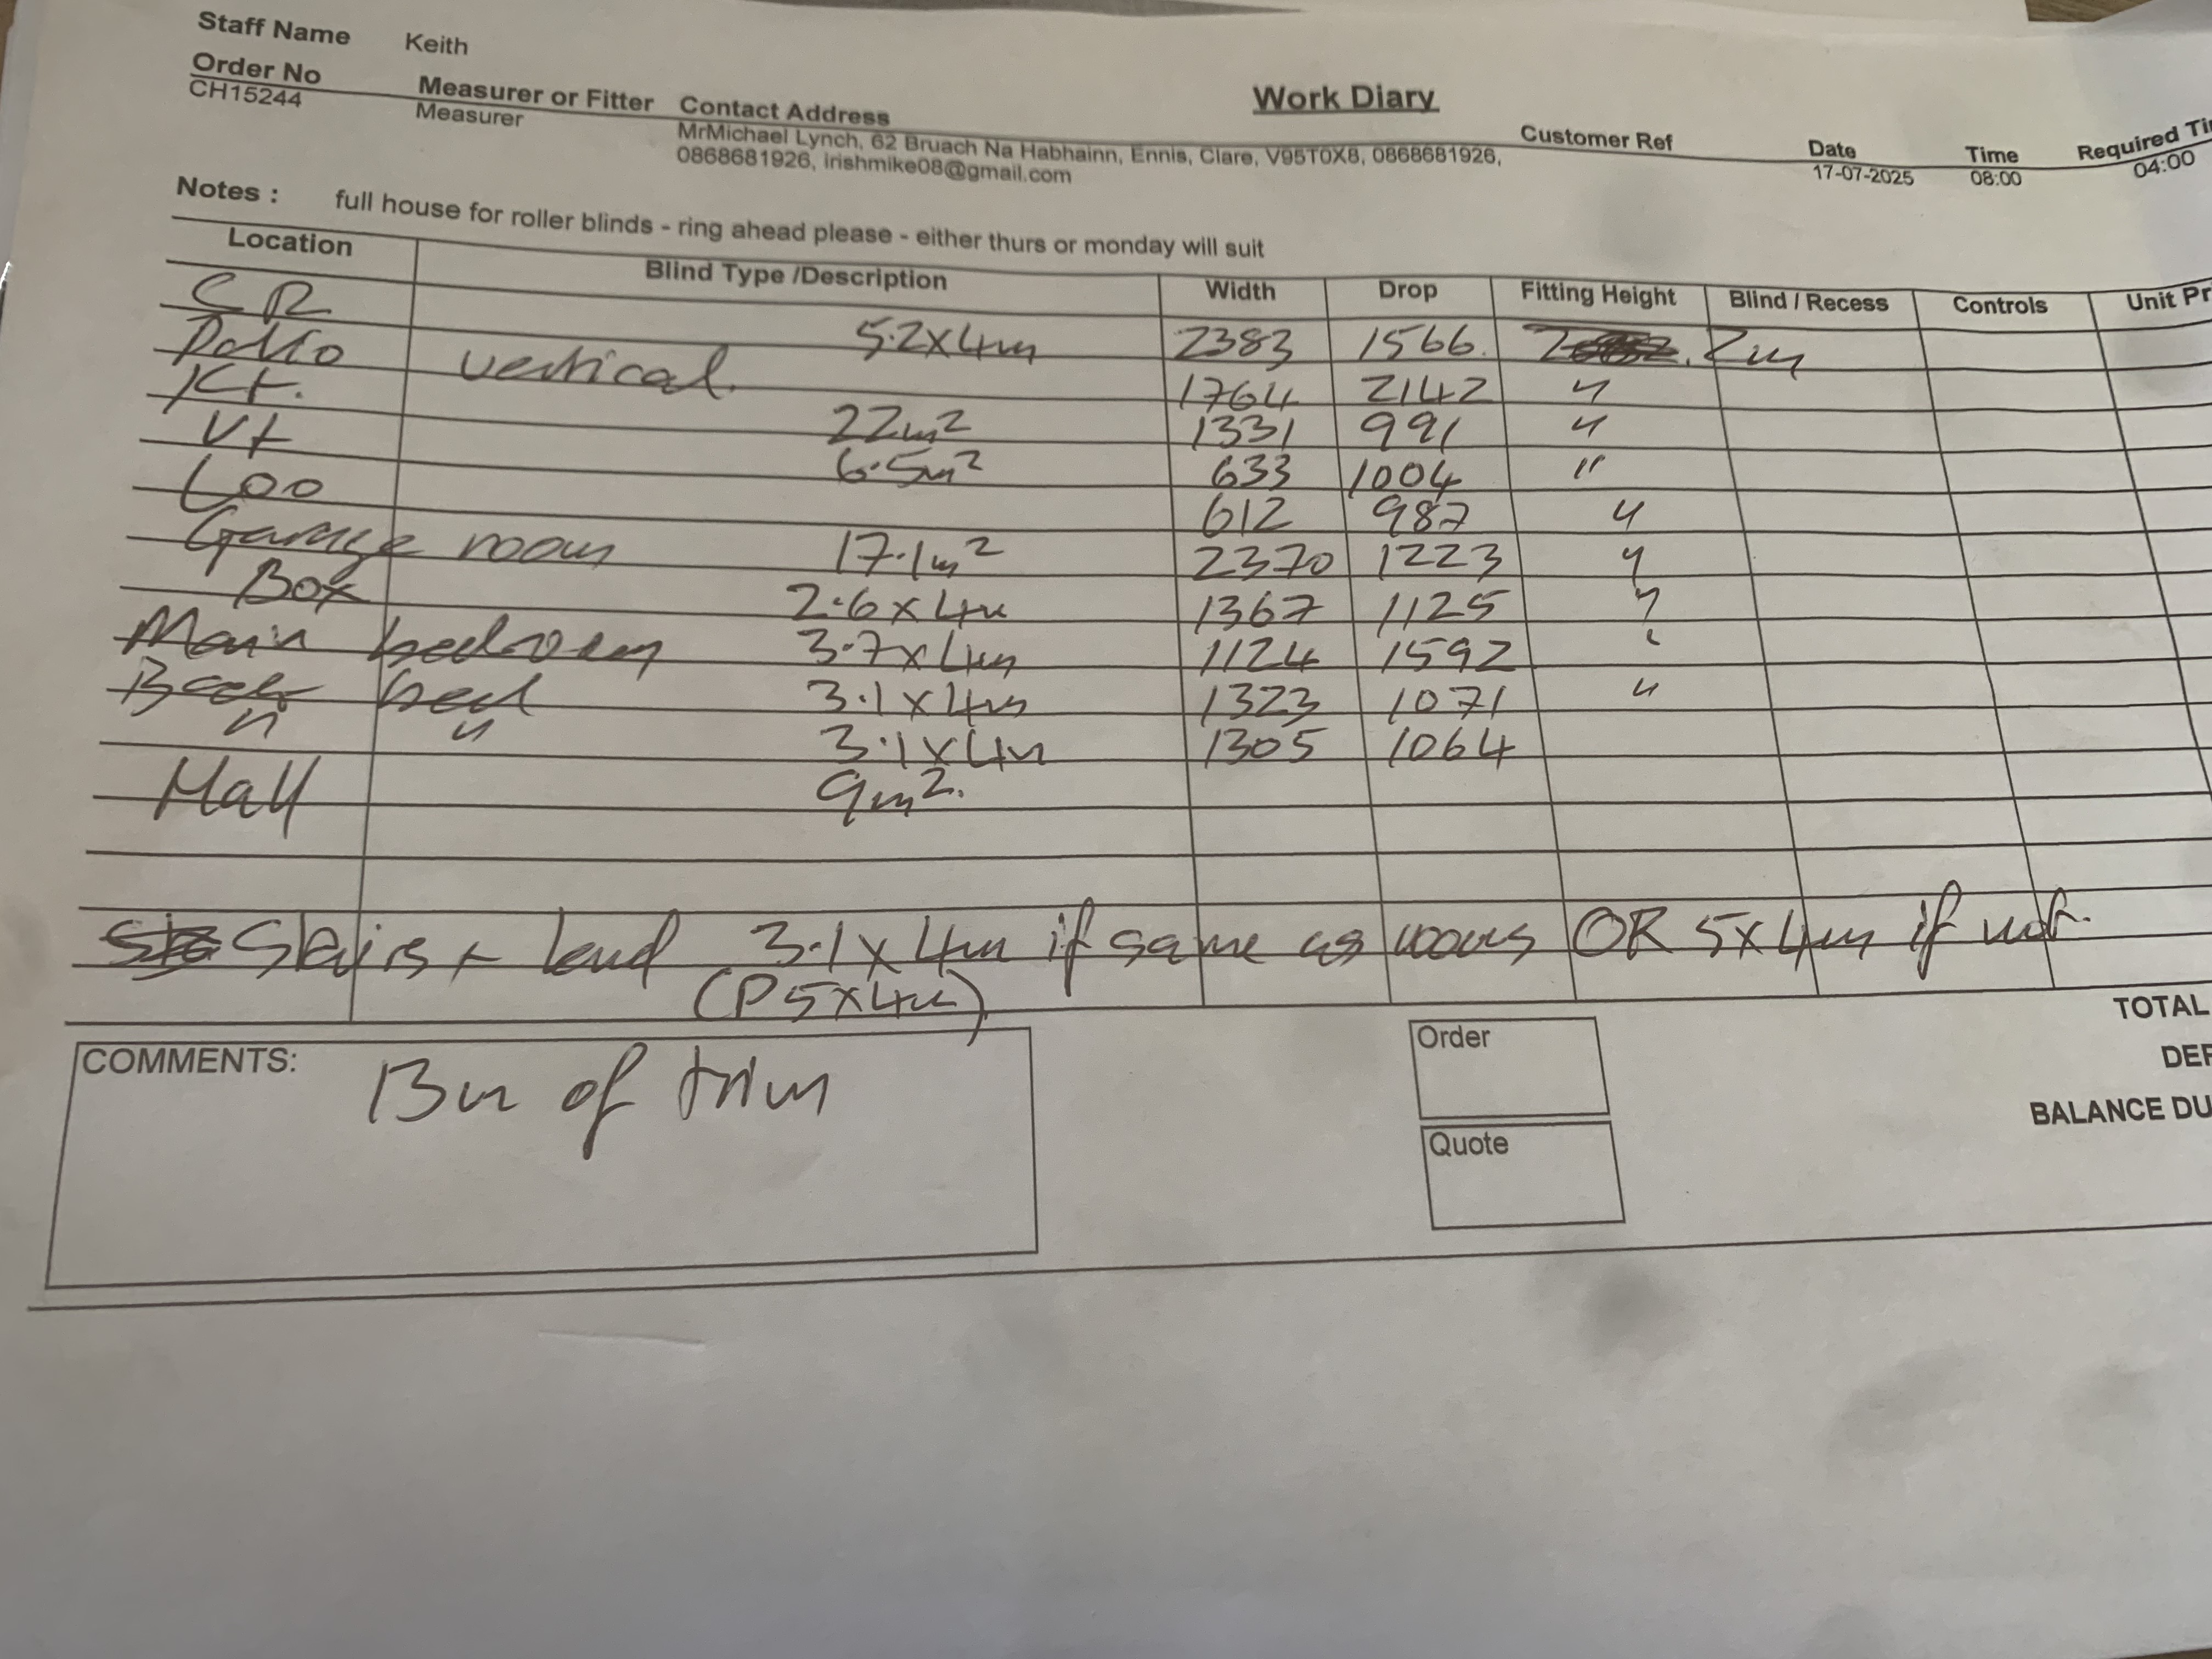 Staff Name Keith
Work Diary
Order No Measurer or Fitter Contact Address Customer Ref Date Time Required Ti
CH15244 Measurer MrMichael Lynch, 62 Bruach Na Habhainn, Ennis, Clare, V95T0X8, 0868681926, 17-07-2025 08:00 04:00
0868681926, irishmike08@gmail.com
Notes : full house for roller blinds - ring ahead please - either thurs or monday will suit
Location Blind Type /Description Width Drop Fitting Height Blind / Recess Controls Unit Pr
5.2x4m 2383 1566. 2m
Patio vertical. 1764 2142 "
Kt. 22m² 1331 991 "
Ut 6.5m² 633 1004 "
Loo 612 987 "
Garage room 17.1m² 2370 1223 "
Box 2.6x4m 1367 1125 "
Main bedroom 3.7x4m 1124 1592 "
Back bed 3.1x4m 1323 1071 "
" " 3.1x4m 1305 1064
Hall 9m².
Stairs + land 3.1x4m if same as rooms OR 5x4m if not.
(P5x4m)
COMMENTS: 13m of trim
Order
Quote
TOTAL
DEP
BALANCE DU